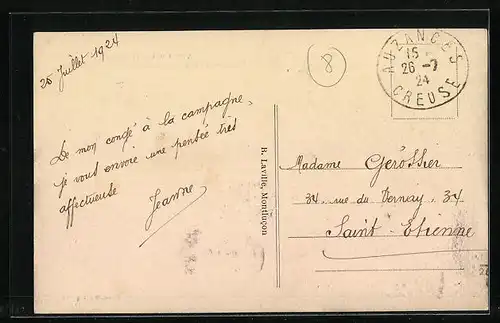 25 Juillet 1924
De mon congé à la campagne,
je vous envoie une pensée très
affectueuse
Jeanne
B. Laville, Montluçon
8
AUZANCES
15
26 -7
24
CREUSE
Madame Gérossier
34, rue du Vernay, 34
Saint-Etienne